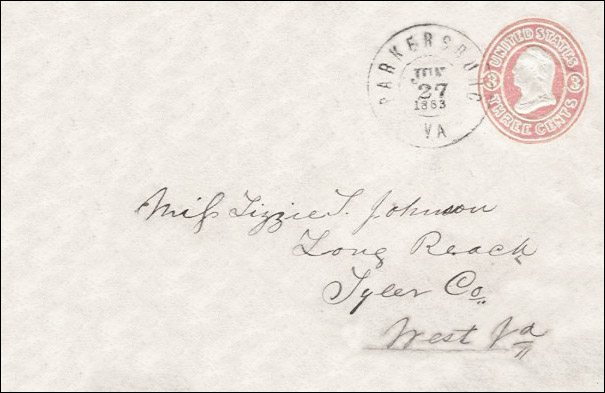 PARKERSBURG
JUN
27
1863
VA
UNITED STATES
3 3
THREE CENTS
Miss Lizzie T. Johnson
Long Reach
Tyler Co.
West Va